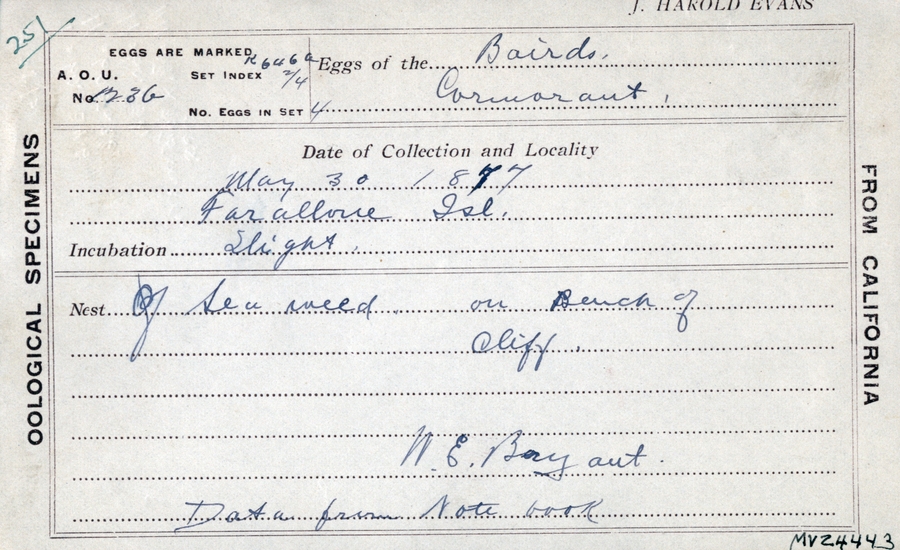 J. HAROLD EVANS
251
EGGS ARE MARKED
A. O. U.
No. 123b
SET INDEX
2/4
No. EGGS IN SET 4
Eggs of the Bairds.
Cormorant.
Date of Collection and Locality
May 30 1877
Farallone Isl.
Incubation Slight.
Nest Of Sea weed. on Bench of
Cliff.
W. E. Bryant.
Data from Note book
OOLOGICAL SPECIMENS
FROM CALIFORNIA
MVZ4443